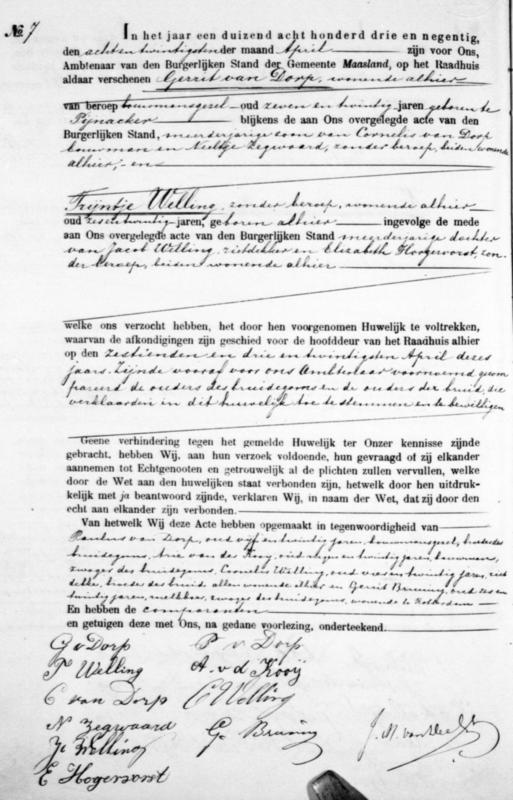 № 7
In het jaar een duizend acht honderd drie en negentig,
den achtentwintigsten der maand April zijn voor Ons,
Ambtenaar van den Burgerlijken Stand der Gemeente Maasland, op het Raadhuis
aldaar verschenen Gerrit van Dorp, wonende alhier
van beroep bouwmansgezel oud zeven en twintig jaren geboren te
Pijnacker blijkens de aan Ons overgelegde acte van den
Burgerlijken Stand, meerderjarige zoon van Cornelis van Dorp
bouwman en Neeltje Zegwaard, zonder beroep, beiden wonende
alhier, en
Trijntje Welling, zonder beroep, wonende alhier
oud zesentwintig jaren, geboren alhier ingevolge de mede
aan Ons overgelegde acte van den Burgerlijken Stand meerderjarige dochter
van Jacob Welling, rietdekker en Elizabeth Hoogervorst, zon-
der beroep, beiden wonende alhier
welke ons verzocht hebben, het door hen voorgenomen Huwelijk te voltrekken,
waarvan de afkondigingen zijn geschied voor de hoofddeur van het Raadhuis alhier
op den zestienden en drie en twintigsten April dezes
jaars. Zijnde vooraf voor ons Ambtenaar voornoemd gecom
pareerd de ouders des bruidegoms en de ouders der bruid, die
verklaarden in dit huwelijk toe te stemmen en te bewilligen
Geene verhindering tegen het gemelde Huwelijk ter Onzer kennisse zijnde
gebracht, hebben Wij, aan hun verzoek voldoende, hun gevraagd of zij elkander
aannemen tot Echtgenooten en getrouwelijk al de plichten zullen vervullen, welke
door de Wet aan den huwelijken staat verbonden zijn, hetwelk door hen uitdruk-
kelijk met ja beantwoord zijnde, verklaren Wij, in naam der Wet, dat zij door den
echt aan elkander zijn verbonden.
Van hetwelk Wij deze Acte hebben opgemaakt in tegenwoordigheid van
van Dorp, oud vijf en twintig jaren, bouwmansgezel, broeder des
bruidegoms, Arie van der Kooij, oud en twintig jaren, bouwman,
zwager des bruidegoms, Cornelis Welling, oud vier en twintig jaren, riet
dekker, broeder der bruid, allen wonende alhier en Gerrit Bruining, oud zes en
twintig jaren, melkboer, zwager des bruidegoms, wonende te Rotterdam
En hebben de comparanten
en getuigen deze met Ons, na gedane voorlezing, onderteekend.
G v Dorp P v Dorp
T Welling A. v d Kooij
C van Dorp C Welling
N Zegwaard G. Bruining
Jb Welling
E Hogervorst